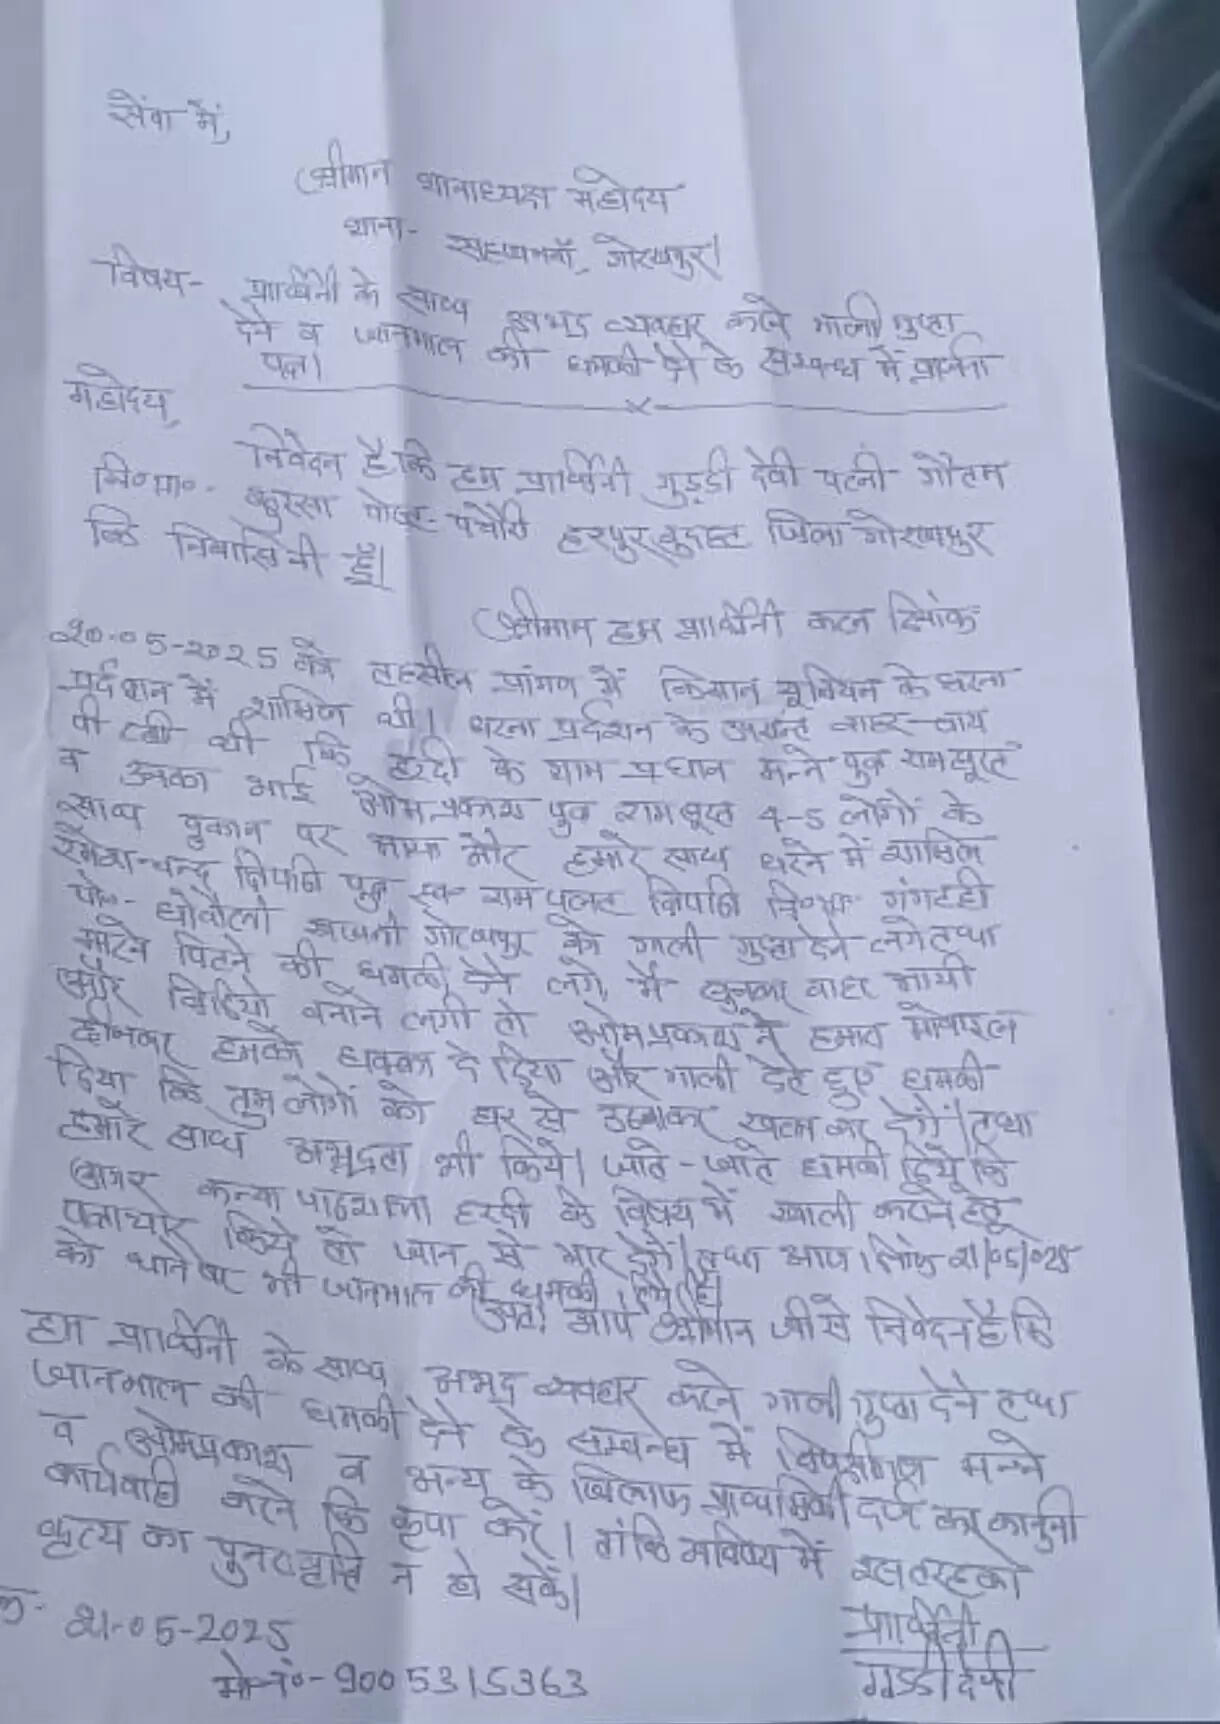 सेवा में,
श्रीमान थानाध्यक्ष महोदय
थाना- सहजनवाँ, गोरखपुर।
विषय- प्रार्थिनी के साथ अभद्र व्यवहार करने गाली गुप्ता
देने व जानमाल की धमकी देने के सम्बन्ध में प्रार्थना
पत्र।
महोदय,
निवेदन है कि हम प्रार्थिनी गुड्डी देवी पत्नी गौतम
नि०ग्रा०- पोस्ट- हरपुर बुदहट जिला गोरखपुर
कि निवासिनी हूँ।
श्रीमान हम प्रार्थिनी कल दिनांक
20-05-2025 को तहसील प्रांगण में किसान यूनियन के धरना
प्रर्दशन में शामिल थी। धरना प्रर्दशन के उपरान्त बाहर चाय
पी रही थी कि हरदी के ग्राम प्रधान मन्ने पुत्र रामसूरत
व उनका भाई ओमप्रकाश पुत्र रामसूरत 4-5 लोगों के
साथ दुकान पर आया और हमारे साथ धरने में शामिल
चन्द त्रिपाठी पुत्र स्व० राम पलट त्रिपाठी गंगटही
पो०- खजनी गोरखपुर को गाली गुप्ता देने लगे तथा
मारने पिटने की धमकी देने लगे, मैं सुनकर बाहर आयी
और विडियो बनाने लगी तो ओमप्रकाश ने हमारा मोबाइल
छीनकर हमको धक्का दे दिया और गाली देते हुए धमकी
दिया कि तुम लोगों को घर से उठवाकर खत्म कर देगें। तथा
हमारे साथ अभद्रता भी किये। जाते-जाते धमकी दिये कि
अगर कन्या पाठशाला हरदी के विषय में खाली कराने हेतु
पत्राचार किये तो जान से मार देगें। तथा आज दिनांक 21/05/025
को थाने पर भी जानमाल की धमकी दिये है।
अतः आप श्रीमान जी से निवेदन है कि
हम प्रार्थिनी के साथ अभद्र व्यवहार करने गाली गुप्ता देने तथा
जानमाल की धमकी देने के सम्बन्ध में विपक्षीगण मन्ने
व ओमप्रकाश व अन्य के खिलाफ प्राथमिकी दर्ज कर कानुनी
कार्यवाही करने कि कृपा करें। तांकि भविष्य में इस तरह का
कृत्य का पुनरावृत्ति न हो सके।
21-05-2025
प्रार्थिनी
मो०नं०- 9005315363
गुड्डी देवी